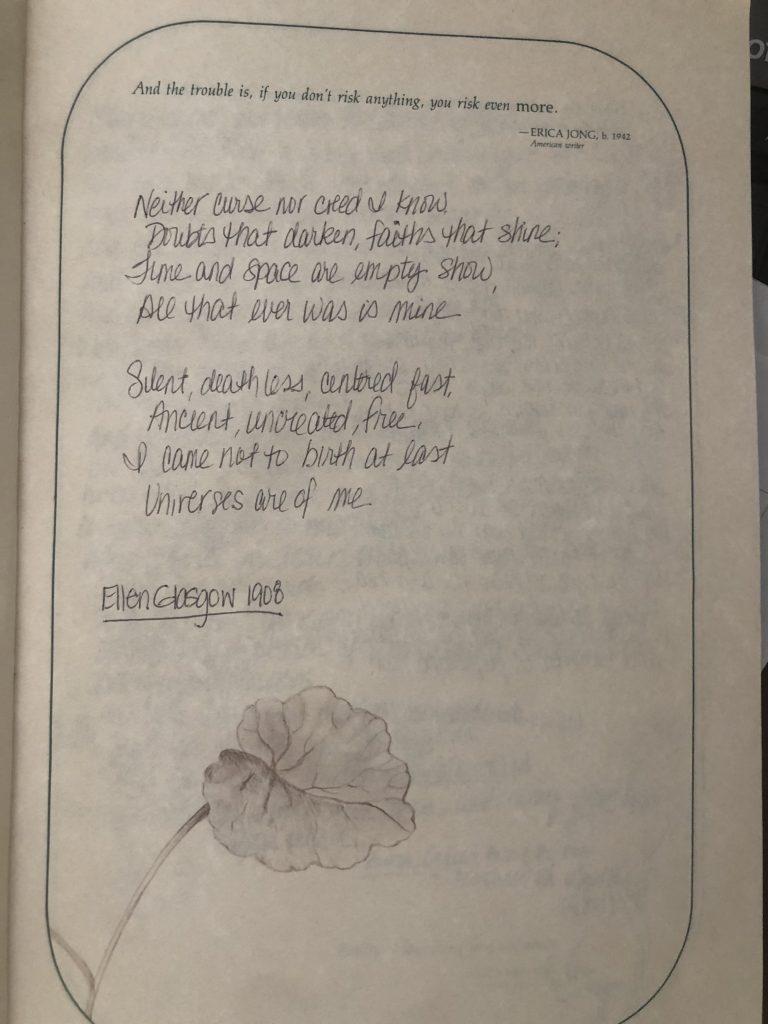 And the trouble is, if you don't risk anything, you risk even more.
—ERICA JONG, b. 1942
American writer
Neither curse nor creed I know
Doubts that darken, faiths that shine;
Time and space are empty show,
All that ever was is mine
Silent, deathless, centred fast,
Ancient, uncreated, free,
I came not to birth at last
Universes are of me
Ellen Glasgow 1908